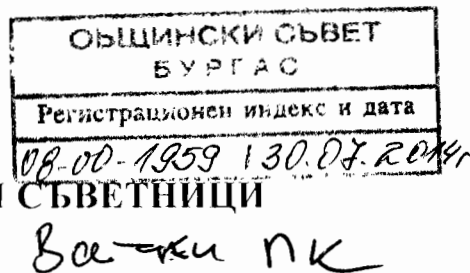 ОБЩИНСКИ СЪВЕТ
БУРГАС
Регистрационен индекс и дата
08-00-1959 / 30.07.2014г
И СЪВЕТНИЦИ
Всички ПК